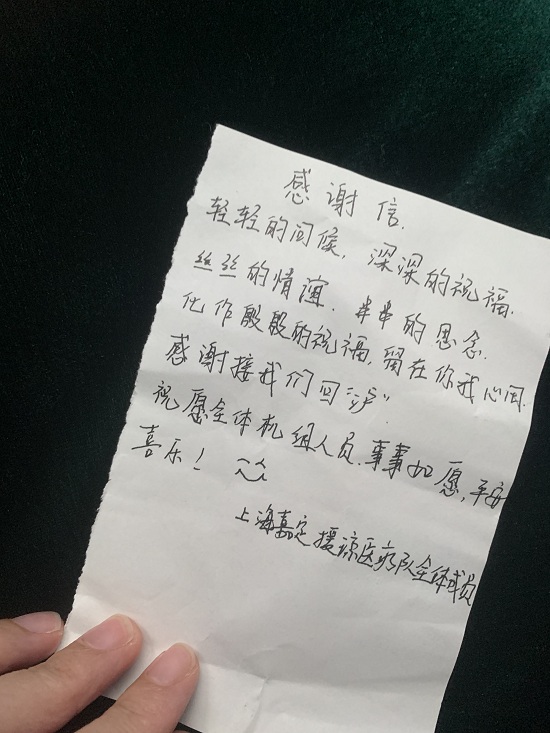 感谢信.
轻轻的问候, 深深的祝福.
丝丝的情谊. 串串的思念.
化作殷殷的祝福, 留在你我心间.
感谢接我们回“沪”.
祝愿全体机组人员. 事事如愿, 平安
喜乐!
上海嘉定援琼医疗队全体成员